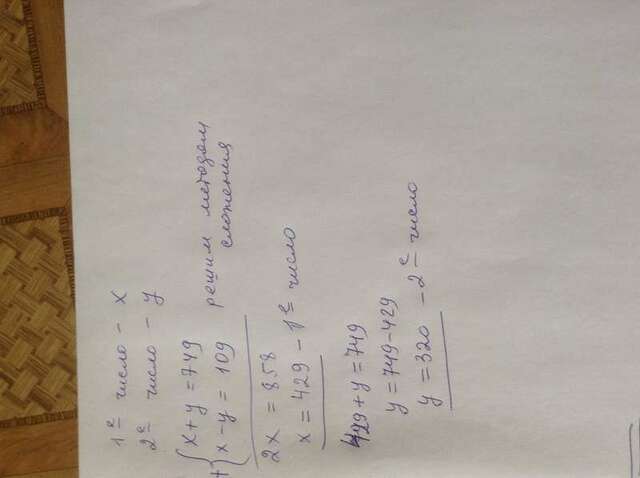 1е число - x
2е число - y
+ { x + y = 749
x - y = 109
решим методом
сложения
2x = 858
x = 429 - 1е число
429 + y = 749
y = 749 - 429
y = 320 - 2е число